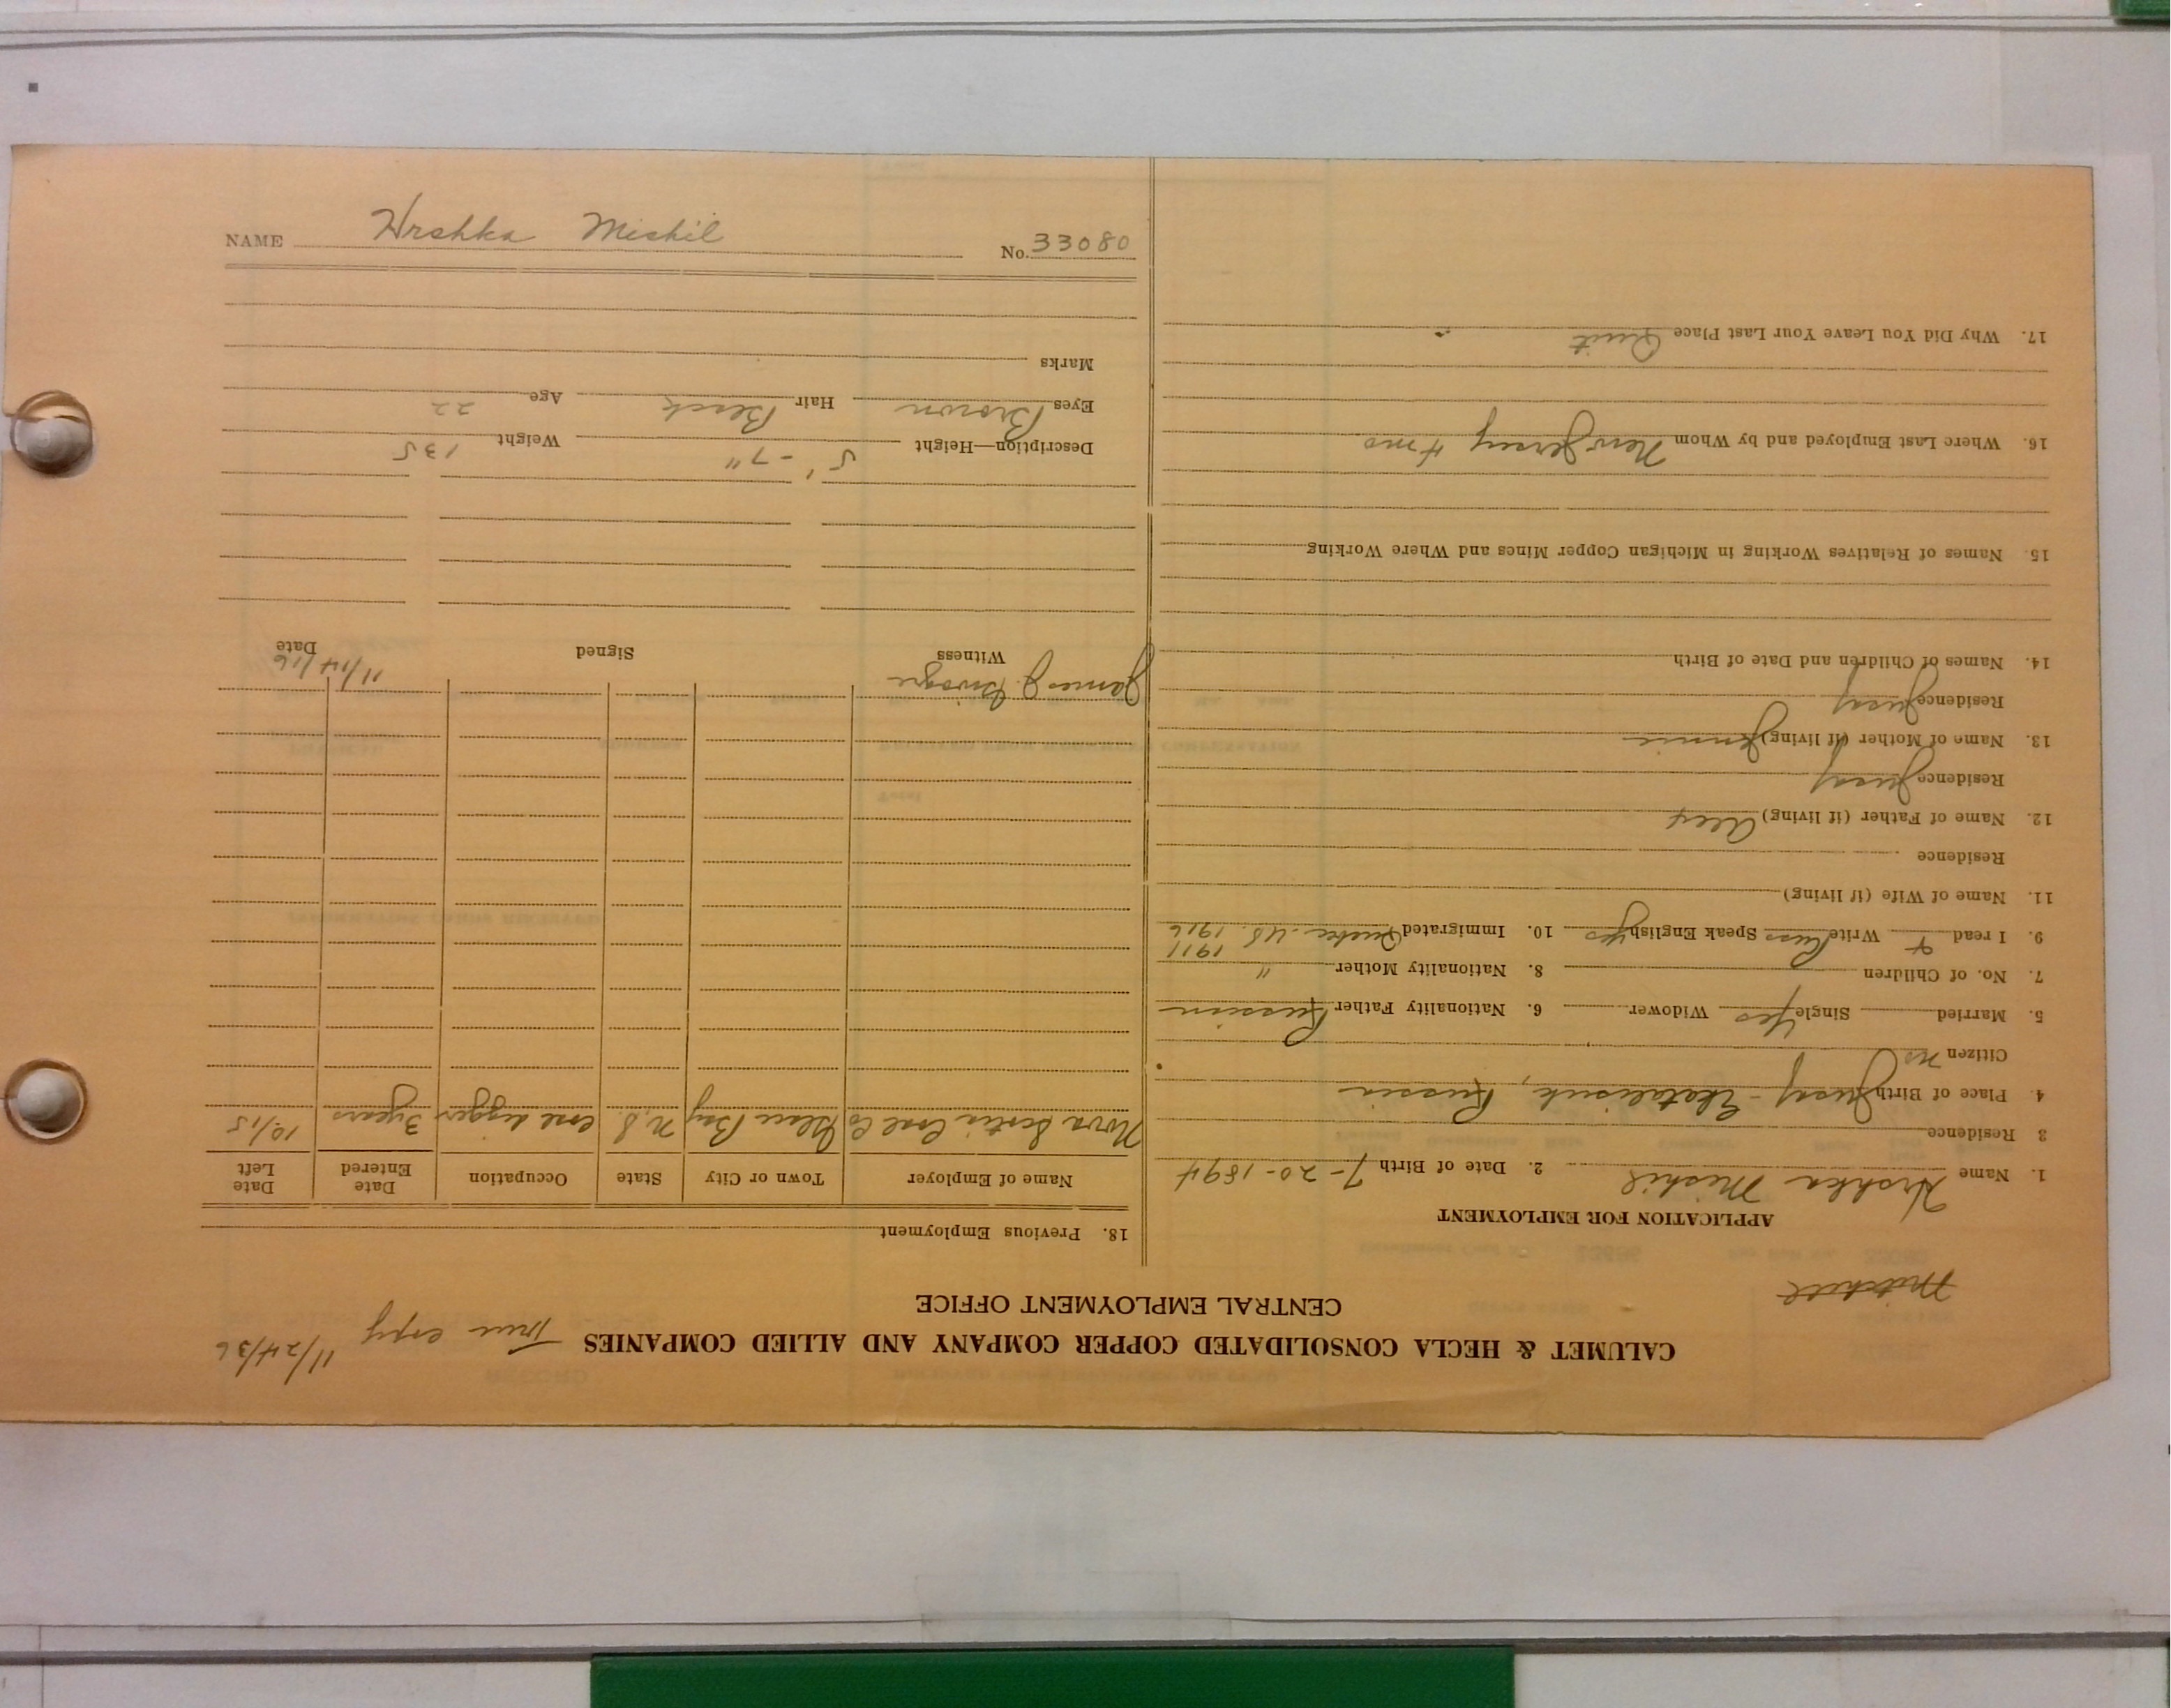 NAME Hrshka Mishil No. 33080
CALUMET & HECLA CONSOLIDATED COPPER COMPANY AND ALLIED COMPANIES True copy 11/24/36
CENTRAL EMPLOYMENT OFFICE
Mitchell
APPLICATION FOR EMPLOYMENT
1. Name Hrshka Mishil 2. Date of Birth 7-20-1894
3 Residence
4. Place of Birth Russia
Citizen no
5. Married Single Yes Widower 6. Nationality Father Russian
7. No. of Children 8. Nationality Mother "
9. I read & Write Russ Speak English yes 10. Immigrated Quebec 1911 U.S. 1916
11. Name of Wife (if living)
Residence
12. Name of Father (if living) Alex
Residence
13. Name of Mother (if living) Jennie
Residence
14. Names of Children and Date of Birth
15. Names of Relatives Working in Michigan Copper Mines and Where Working
16. Where Last Employed and by Whom New Jersey 4 mo
17. Why Did You Leave Your Last Place Quit
18. Previous Employment
Name of Employer Town or City State Occupation Date Entered Date Left
Nova Scotia Coal Co Glace Bay N.S. Coal digger 3 years 10/15
James J. 11/14/16
Witness Signed Date
Description—Height 5'-7" Weight 135
Eyes Brown Hair Black Age 22
Marks